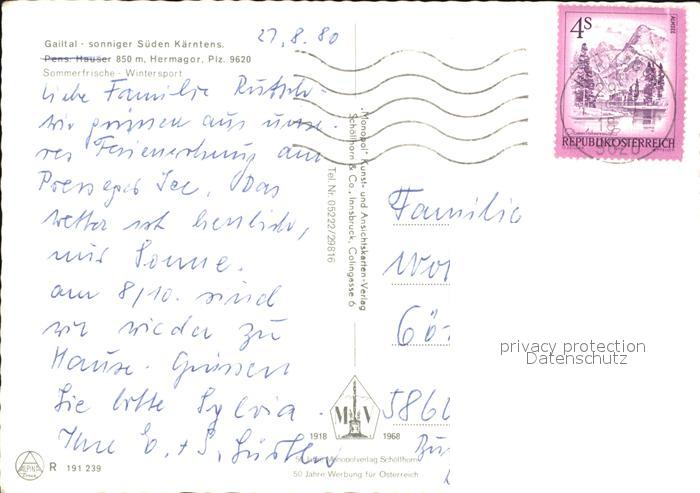 27.8.80
Gailtal - sonniger Süden Kärntens.
Pens. Hauser 850 m, Hermagor, Plz. 9620
Sommerfrische - Wintersport
Liebe Familie
wir grüssen aus unse-
rer Ferienwohnung am
Presseger See. Das
Wetter ist herrlich,
nur Sonne.
am 8/10. sind
wir wieder zu
Hause. Grüssen
Sie bitte Sylvia.
Ihre E. + S.
ALPINA
Druck
R 191 239
„Monopol“ Kunst- und Ansichtskarten-Verlag
Schöllhorn & Co., Innsbruck, Colingasse 6
Tel. Nr. 05222/29816
M V
1918 1968
50 Jahre Monopolverlag Schöllhorn
50 Jahre Werbung für Österreich
4S
ALMSEE
REPUBLIK ÖSTERREICH
Familie
Wo
Gö
586
privacy protection
Datenschutz